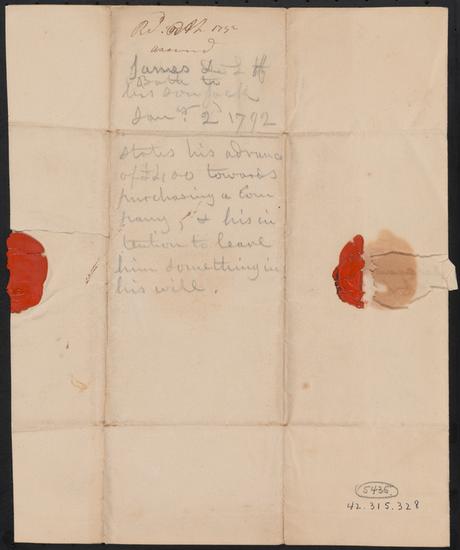 Rd. 1792
answd
James
Bath to
his son Jack
Jany. 2d 1792
states his advance
of £400 towards
purchasing a Com
pany, & his in
tention to leave
him something in
his will.
5435
42.315.328